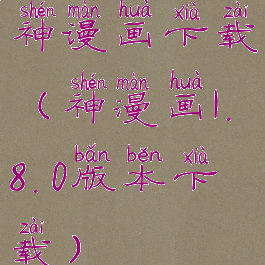 shén màn huà xià zài
神漫画下载
shén màn huà
(神漫画1.
bǎn běn xià
8.0版本下
zài
载)